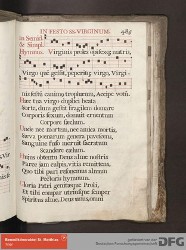 IN FESTO SS. VIRGINUM.
Hymnus. Virginis proles opifexque matris,
Virgo quem gessit, peperitque virgo, Virgi-
nis festum canimus trophaeum, Accipe votum.
Haec tua virgo duplici beata
Sorte, dum gestit fragilem domare
Corporis sexum, domuit cruentum
Corpore saeclum.
Unde nec mortem, nec amica mortis
Saeva poenarum genera pavescens,
Sanguine fuso meruit sacratum
Scandere caelum.
Hujus obtentu Deus alme nostris
Parce jam culpis, vitia remittens,
Quo tibi puri resonemus almum
Pectoris hymnum.
Gloria Patri genitaeque Proli,
Et tibi compar utriusque semper
Spiritus alme, Deus unus, omni
DFG